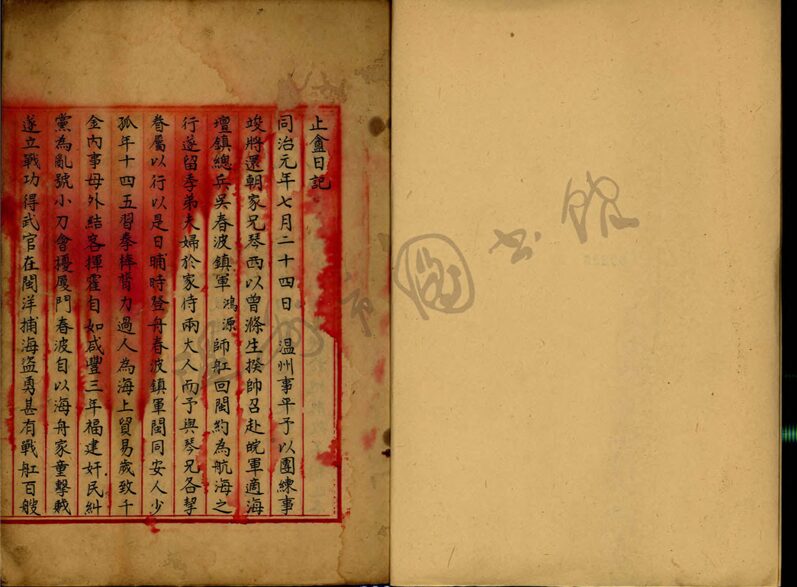 止盦日記
同治元年七月二十四日　温州事平予以團練事
竣將還朝家兄琴西以曾滌生揆帥召赴皖軍適海
壇鎮總兵吳春波鎮軍鴻源師舡回閩約為航海之
行遂留季弟夫婦於家侍兩大人而予與琴兄各挈
眷屬以行以是日晡時登舟春波鎮軍閩同安人少
孤年十四五習拳捧膂力過人為海上貿易歲致千
金內事母外結客揮霍自如咸豐三年福建奸民糾
黨為亂號小刀會擾厦門春波自以海舟家童擊賊
遂立戰功得武官在閩洋捕海盜勇甚有戰舡百艘